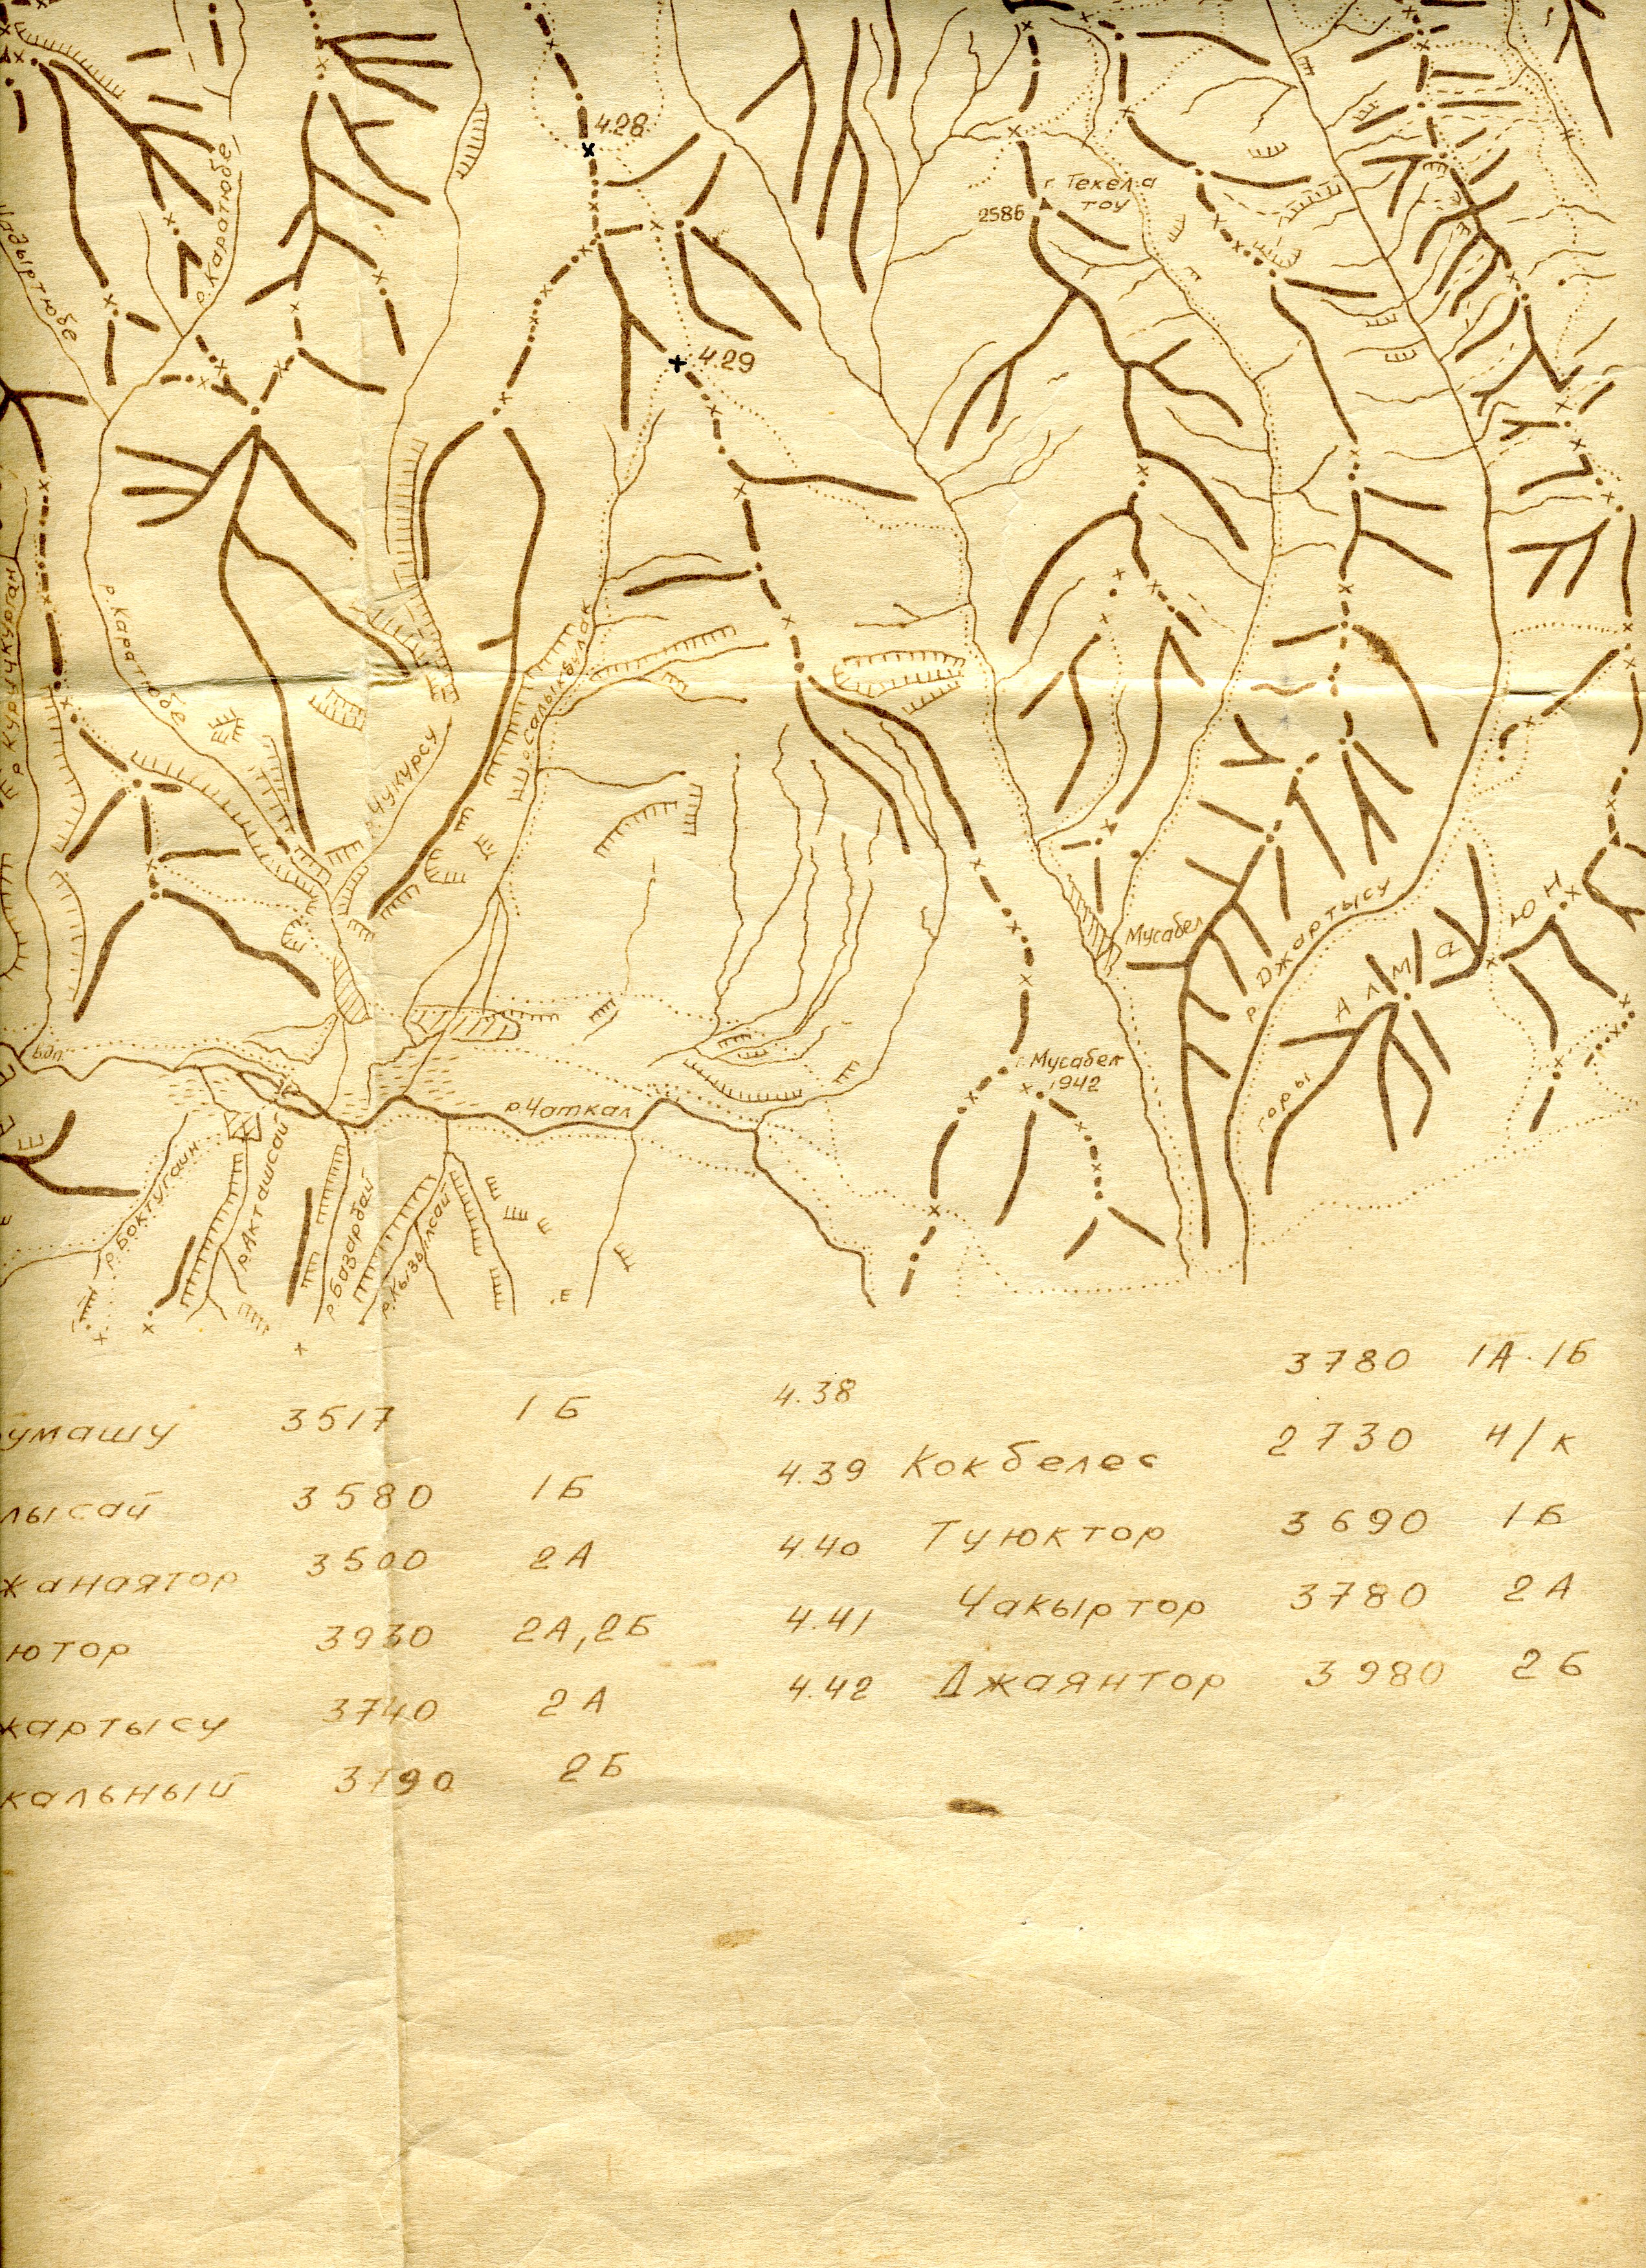 4.28
г. Текел.а
тоу
2586
р. Каратюбе
Чадыртюбе
4.29
р. Курычкурган
р. Каратюбе
р. Салыкбулак
Чукурсу
Мусабел
р. Джартысу
горы Алмаюн
г. Мусабел
1942
вдп.
р. Чаткал
р. Боктугаин
р. Акташсай
р. Базарбай
р. Кызылсай
3780 1А. 1Б
умашу 3517 1Б 4.38
2730 Н/к
лысай 3580 1Б 4.39 Кокбелес
3690 1Б
жанаятор 3500 2А 4.40 Туюктор
ютор 3930 2А, 2Б 4.41 Чакыртор 3780 2А
жартысу 3740 2А 4.42 Джаянтор 3980 2Б
кальный 3790 2Б